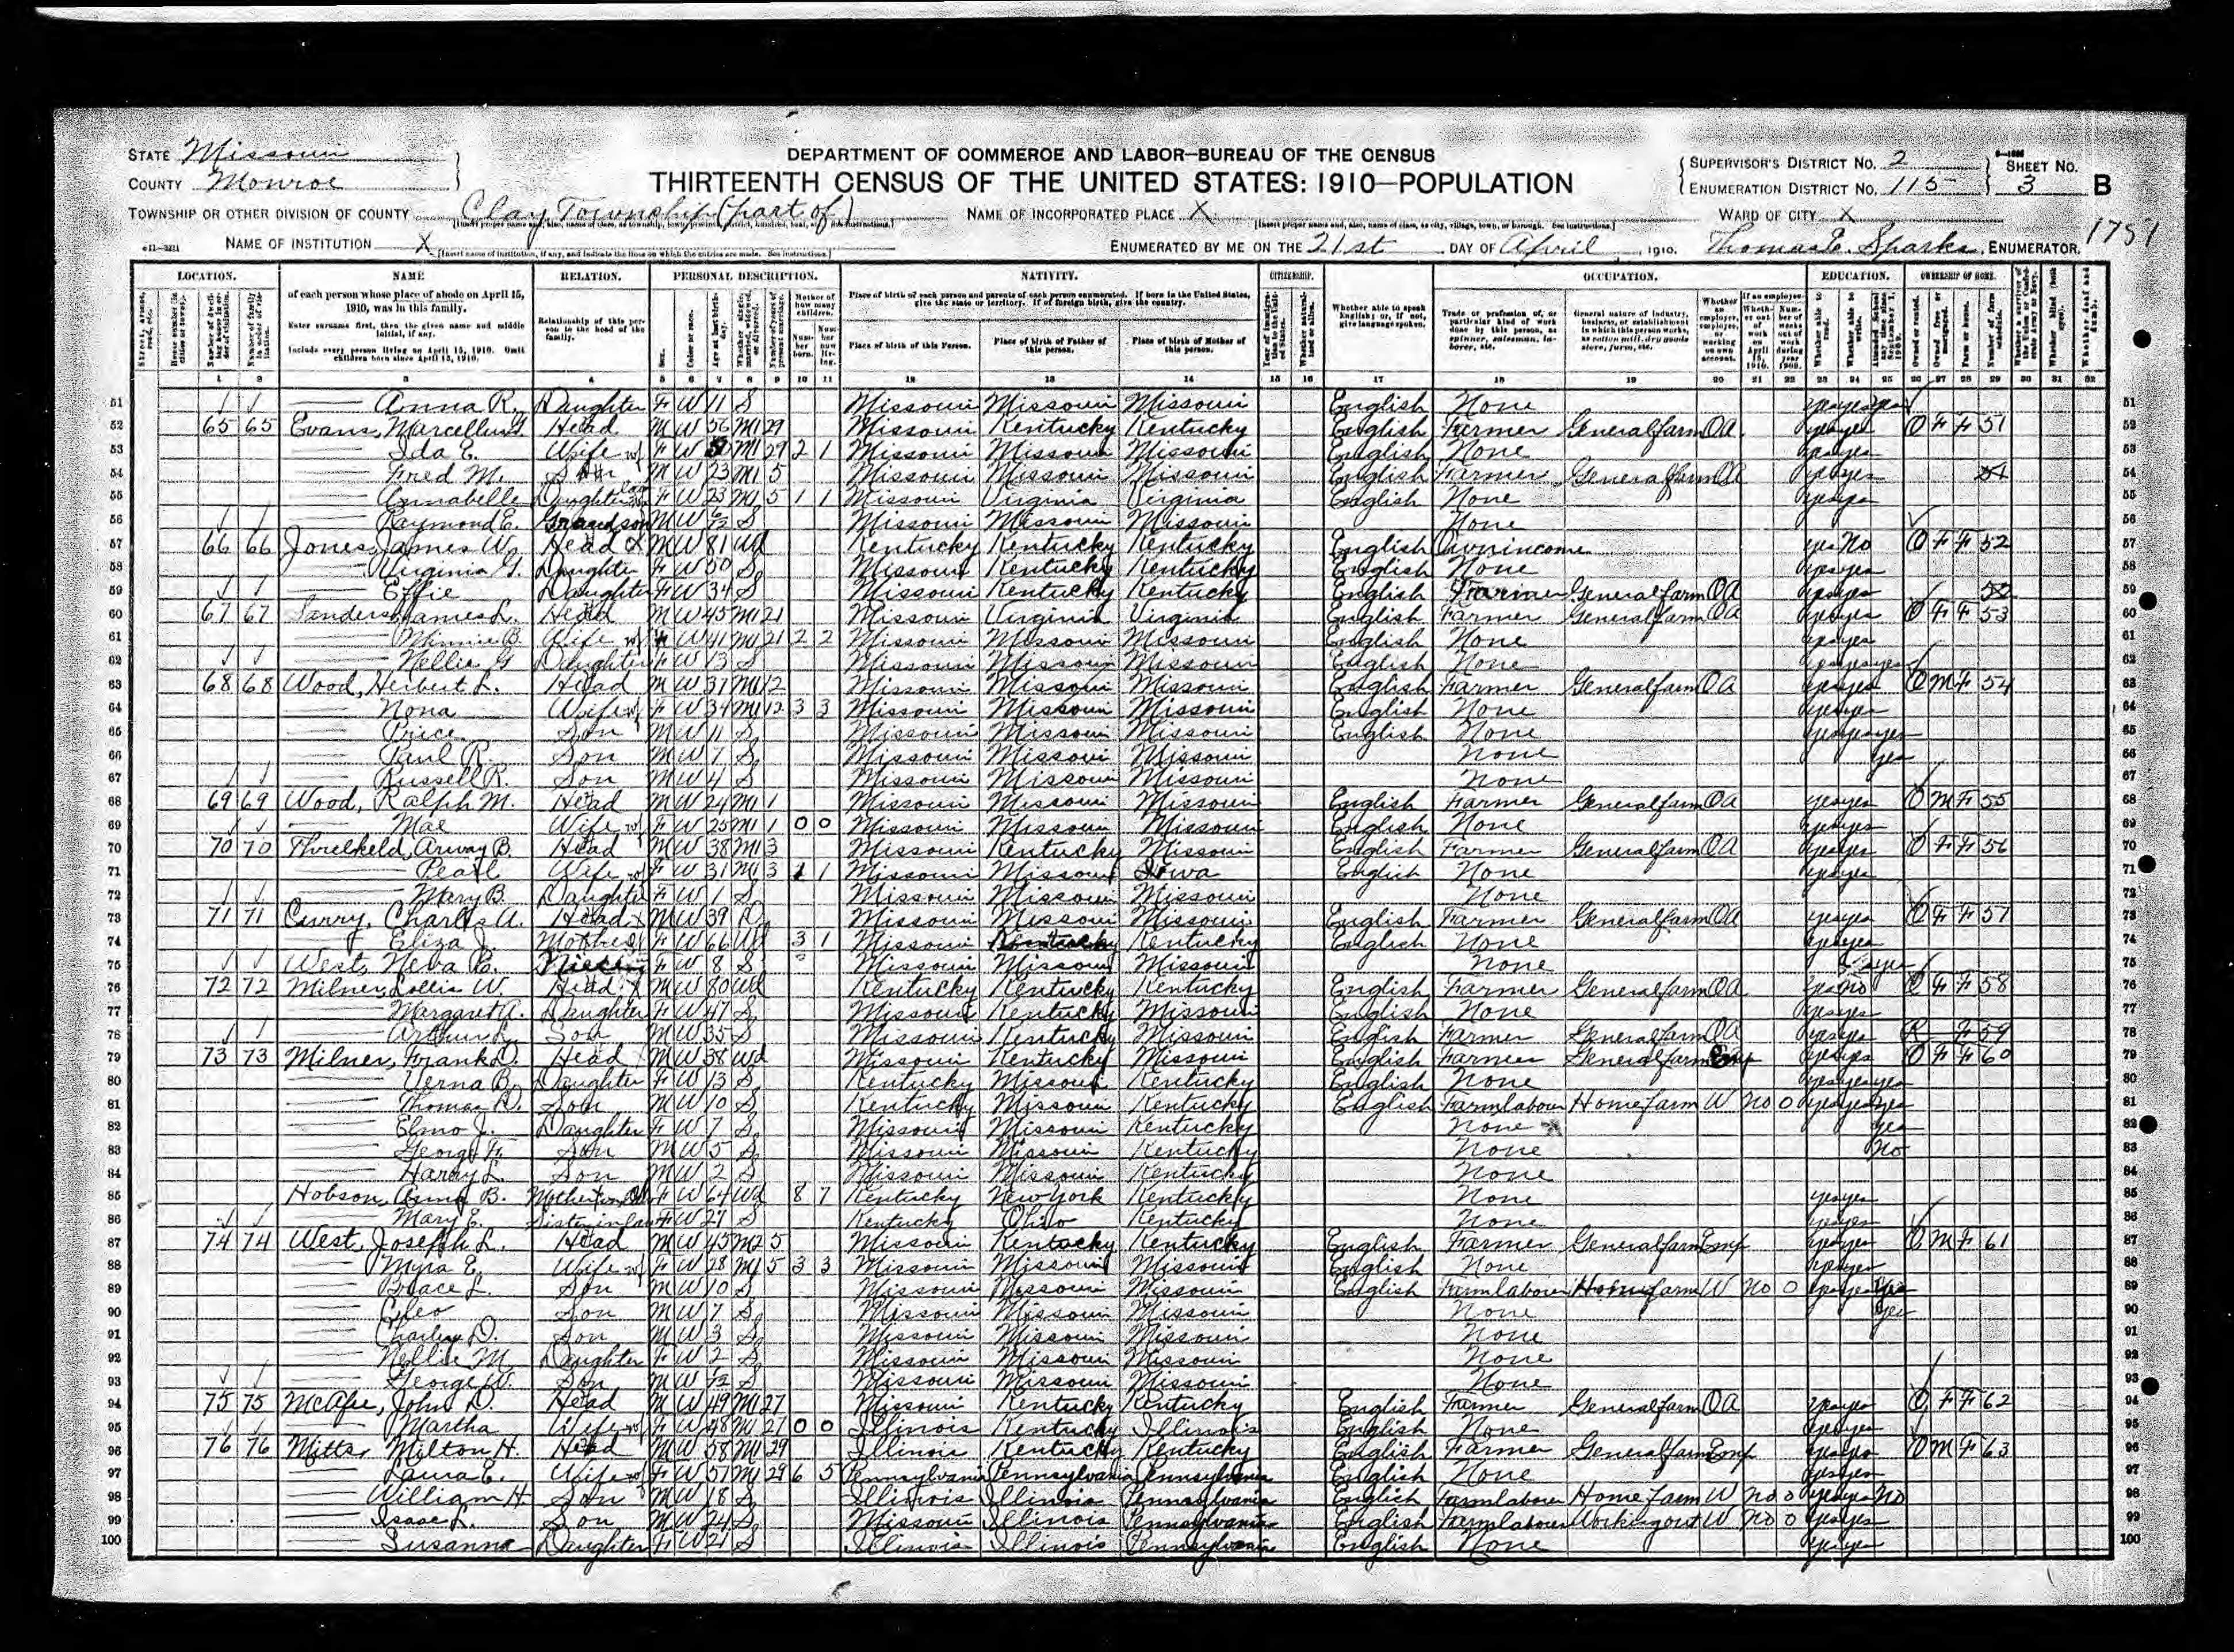 STATE Missouri
COUNTY Monroe
DEPARTMENT OF COMMERCE AND LABOR—BUREAU OF THE CENSUS
THIRTEENTH CENSUS OF THE UNITED STATES: 1910—POPULATION
SUPERVISOR'S DISTRICT NO. 2
ENUMERATION DISTRICT NO. 115
SHEET NO. 3 B
TOWNSHIP OR OTHER DIVISION OF COUNTY Clay Township (part of)
NAME OF INCORPORATED PLACE X
WARD OF CITY X
1751
NAME OF INSTITUTION X
ENUMERATED BY ME ON THE 21st DAY OF April, 1910. Thomas E. Sparks, ENUMERATOR.
LOCATION. NAME RELATION. PERSONAL DESCRIPTION. NATIVITY. CITIZENSHIP. OCCUPATION. EDUCATION. OWNERSHIP OF HOME.
of each person whose place of abode on April 15, 1910, was in this family.
Enter surname first, then the given name and middle initial, if any.
Include every person living on April 15, 1910. Omit children born since April 15, 1910.
Relationship of this person to the head of the family.
Place of birth of this Person. Place of birth of Father of this person. Place of birth of Mother of this person.
51 Anna R. Daughter F W 11 S Missouri Missouri Missouri English None yes yes yes
52 65 65 Evans, Marcellus Head M W 56 M1 29 Missouri Kentucky Kentucky English Farmer General farm OA yes yes O F F 51
53 Ida E. Wife F W M1 29 2 1 Missouri Missouri Missouri English None yes yes
54 Fred M. Son M W 23 M1 5 Missouri Missouri Missouri English Farmer General farm OA yes yes
55 Annabelle Daughter in law F W 23 M1 5 1 1 Missouri Virginia Virginia English None yes yes
56 Raymond E. Grandson M W 6/12 S Missouri Missouri Missouri None
57 66 66 Jones, James W. Head M W 81 Wd Kentucky Kentucky Kentucky English Own income yes No O F F 52
58 Virginia G. Daughter F W 50 S Missouri Kentucky Kentucky English None yes yes
59 Effie Daughter F W 34 S Missouri Kentucky Kentucky English Farmer General farm OA yes yes
60 67 67 Sanders, James L. Head M W 45 M1 21 Missouri Virginia Virginia English Farmer General farm OA yes yes O F F 53
61 Minnie B. Wife F W 41 M1 21 2 2 Missouri Missouri Missouri English None yes yes
62 Nellie G. Daughter F W 13 S Missouri Missouri Missouri English None yes yes yes
63 68 68 Wood, Herbert L. Head M W 37 M1 12 Missouri Missouri Missouri English Farmer General farm OA yes yes O M F 54
64 Nona Wife F W 34 M1 12 3 3 Missouri Missouri Missouri English None yes yes
65 Price Son M W 11 S Missouri Missouri Missouri English None yes yes yes
66 Paul R. Son M W 7 S Missouri Missouri Missouri None yes
67 Russell R. Son M W 4 S Missouri Missouri Missouri None
68 69 69 Wood, Ralph M. Head M W 24 M1 1 Missouri Missouri Missouri English Farmer General farm OA yes yes O M F 55
69 Mae Wife F W 25 M1 1 0 0 Missouri Missouri Missouri English None yes yes
70 70 70 Threlkeld, B. Head M W 38 M1 3 Missouri Kentucky Missouri English Farmer General farm OA yes yes O F F 56
71 Pearl Wife F W 31 M1 3 1 1 Missouri Missouri Iowa English None yes yes
72 Mary B. Daughter F W 1 S Missouri Missouri Missouri None
73 71 71 Curry, Charles A. Head M W 39 D Missouri Missouri Missouri English Farmer General farm OA yes yes O F F 57
74 Eliza J. Mother F W 66 Wd 3 1 Missouri Kentucky Kentucky English None yes yes
75 West, Neva B. Niece F W 8 S Missouri Missouri Missouri None yes
76 72 72 Milner, Lollis W. Head M W 80 Wd Kentucky Kentucky Kentucky English Farmer General farm OA yes No O F F 58
77 Margaret A. Daughter F W 47 S Missouri Kentucky Missouri English None yes yes
78 Arthur L. Son M W 35 S Missouri Kentucky Missouri English Farmer General farm OA yes yes R F 59
79 73 73 Milner, Frank D. Head M W 38 Wd Missouri Kentucky Missouri English Farmer General farm Emp yes yes O F F 60
80 Verna B. Daughter F W 13 S Kentucky Missouri Kentucky English None yes yes yes
81 Thomas D. Son M W 10 S Kentucky Missouri Kentucky English Farm labour Home farm W No 0 yes yes yes
82 Elmo J. Daughter F W 7 S Missouri Missouri Kentucky None yes
83 George F. Son M W 5 S Missouri Missouri Kentucky None No
84 Harry L. Son M W 2 S Missouri Missouri Kentucky None
85 Hobson, B. Mother in law F W 64 Wd 8 7 Kentucky New York Kentucky None yes yes
86 Mary E. Sister in law F W 27 S Kentucky Ohio Kentucky None yes yes
87 74 74 West, Joseph L. Head M W 45 M2 5 Missouri Kentucky Kentucky English Farmer General farm Emp yes yes O M F 61
88 Myra E. Wife F W 28 M1 5 3 3 Missouri Missouri Missouri English None yes yes
89 L. Son M W 10 S Missouri Missouri Missouri English Farm labour Home farm W No 0 yes yes yes
90 Cleo Son M W 7 S Missouri Missouri Missouri None yes
91 Charles D. Son M W 3 S Missouri Missouri Missouri None
92 Nellie M. Daughter F W 2 S Missouri Missouri Missouri None
93 George W. Son M W S Missouri Missouri Missouri None
94 75 75 McAfee, John D. Head M W 49 M1 27 Missouri Kentucky Kentucky English Farmer General farm OA yes yes O F F 62
95 Martha Wife F W 48 M1 27 0 0 Illinois Kentucky Illinois English None yes yes
96 76 76 Mitts, Milton H. Head M W 58 M1 29 Illinois Kentucky Kentucky English Farmer General farm Emp yes yes O M F 63
97 Laura E. Wife F W 57 M1 29 6 5 Pennsylvania Pennsylvania Pennsylvania English None yes yes
98 William H. Son M W 18 S Illinois Illinois Pennsylvania English Farm labour Home farm W No 0 yes yes No
99 Isaac L. Son M W 24 S Missouri Illinois Pennsylvania English Farm labour Working out W No 0 yes yes
100 Susanna Daughter F W 21 S Illinois Illinois Pennsylvania English None yes yes